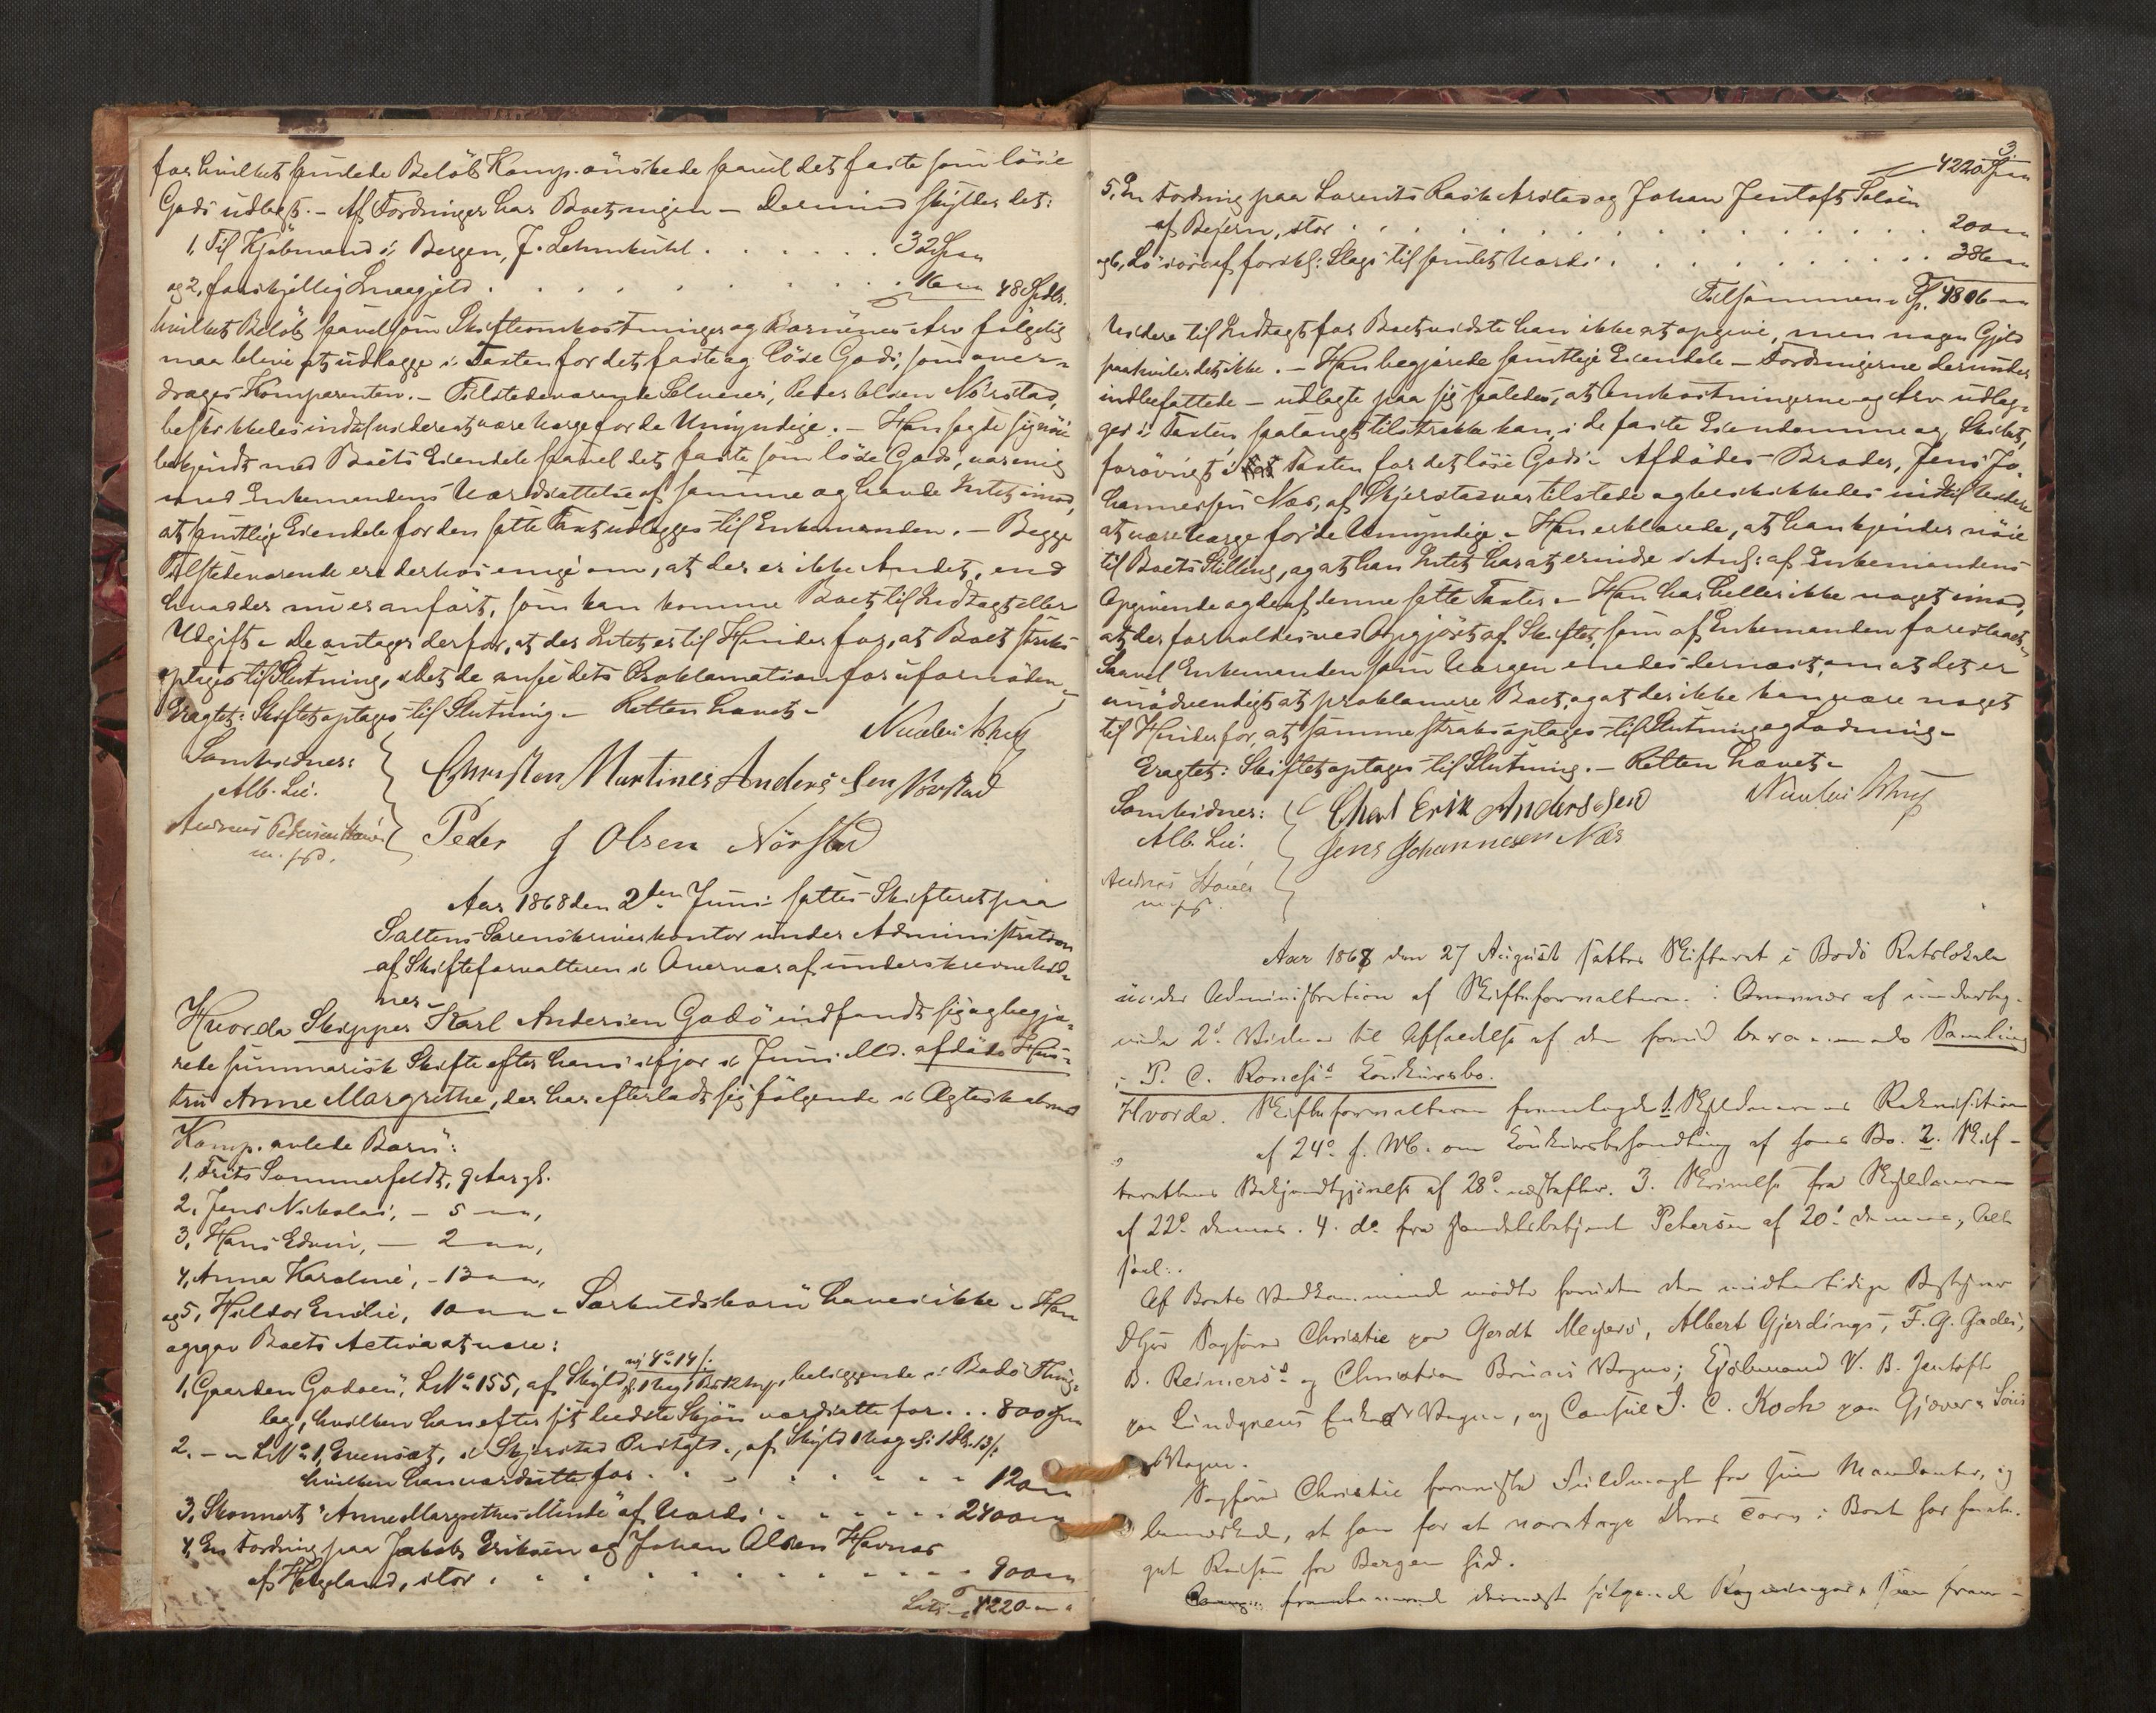 for hvilket samlede Beløb Komp. ønskede saavel det faste som løse
Gods udlagt. - Af Fordringer har Boet ingen - Derimod skylder det:
1, Til Kjøbmand i Bergen, J. Lehmkuhl . . . . . . 32 Spd
og 2, forskjellig Smaagjeld . . . . . . . . 16 " 48 Spdlr.
hvilket Beløb saavelsom Skifteomkostninger og Børnenes Arv følgelig
maa blive at udlægge i Taxten for det faste og løse Gods, som over-
drages Komparenten. - Tilstedeværende Selveier, Peder Olsen Nørstad,
beskikkedes indtil videre at være Værge for de Umyndige. - Han sagde sig nøie
bekjendt med Boets Eiendele saavel det faste som løse Gods, var enig
med Enkemandens Værdsættelse af samme og havde Intet imod,
at samtlige Eiendele for den satte Taxt udlægges til Enkemanden. - Begge
Tilstedeværende ere derhos enige om, at der er ikke Andet, end
hvad der nu er anført, som kan komme Boet til Indtægt eller
Udgift. De antager derfor, at der Intet er til Hinder for, at Boet straks
optages til Slutning, idet de anse dets Proklamation for ufornøden.
Eragtet: Skiftet optages til Slutning. - Retten hævet.
Samvidner:
Alb. Lie.
Christen Martines Anderssen Nørstad
Peder J Olsen Nørstad
m. f. P.
Aar 1868 den 2den Juni sattes Skifteret paa
Saltens Sorenskriverkontor under Administration
af Skifteforvalteren i Overvær af underskrevne Vid-
ner
Hvorda Skipper Karl Andersen Godø indfandt sig og begjæ-
rede summarisk Skifte efter hans ifjor i Juni Md. afdøde Hus-
tru Anne Margrethe, der har efterladt sig følgende i Ægteskab med
Komp. avlede Børn:
1, Frits Sommerfeldt, 9 Aar gl.
2, Jens Nikolai, - 5 " ",
3, Hans Edvin, - 2 " ",
4, Anna Karoline, - 13 " ",
og 5, Hildor Emilie, 10 " " - Særkuldsbørn haves ikke. Han
opgav Boets Activa at være:
ny 4 " 14 s.
1, Gaarden Godøen, L.No 155, af Skyld gl. 1 Vog 1 Bpd. 12 Mrk., beliggende i Bodø Thing-
lag, hvilken han efter sit bedste Skjøn værdsatte for . . . 800 Spd
2, - " L.No 1, Evensæt, i Skjerstad Prstgld., af Skyld 1 Vog ny 1 Sk. 13 s.
hvilken han værdsatte for . . . . . . . . 120 "
3, Skonnert "Anne Margrethes Minde" af Værdi . . . . . . 2400 "
4, En Fordring paa Jakob Eriksen og Johan Olsen Havnes
af Helgeland, stor . . . . . . . . . . . 900 "
Lats 4220 "
3.
4220 Spd
5, En Fordring paa Lorents Rask Arstad og Johan Jentoft Soløen
af Beiern, stor . . . . . . . . . . . . . 200 "
og 6, Løsøre af forskj: Slags til samlet Værdi . . . . . . . . 386 "
Tilsammen Sp. 4806 "
Videre til Indtægt for Boet vidste han ikke at opgive, men nogen Gjæld
paahviler det ikke. - Han begjærede samtlige Eiendele - Fordringerne derunder
indbefattede - udlagte paa sig saaledes, at Omkostningerne og Arv udlæg-
ges i Taxten, saalangt tilstrække kan, i de faste Eiendomme og Skibet,
forøvrigt i Taxten for det løse Gods. Afdødes Broder, Jens Jo-
hannessen Næs, af Skjerstad var tilstede og beskikkedes indtil Videre
at være Værge for de Umyndige. - Han erklærede, at han kjender nøie
til Boets Stilling, og at han Intet har at erindre i Anl: af Enkemandens
Opgivende og de af denne satte Taxter. - Han har heller ikke noget imod,
at der forholdes ved Opgjøret af Skiftet, som af Enkemanden foreslaaet.
Saavel Enkemanden som Værgen enedes dernæst, om at det er
unødvendigt at proklamere Boet, og at der ikke kan være noget
til Hinder for, at samme straks optages til Slutning og Lodning.
Eragtet: Skiftet optages til Slutning. - Retten hævet.
Samvidner:
Alb. Lie.
Charl Erik Anderssen
Jens Johannesen Næs
m. f. P.
Aar 1868 den 27 August sattes Skifteret i Bodø Retslokale
under Administration af Skifteforvalteren i Overvær af underteg-
nede 2de Vidner til Afholdelse af den forud berammede Samling
i P. C. Røness Konkursbo.
Hvorda Skifteforvalteren fremlagde 1. Skyldnerens Rekvisition
af 24de f. M. om Konkursbehandling af hans Bo. 2. Skif-
terettens Bekjendtgjørelse af 28de næstefter. 3. Skrivelse fra Skyldneren
af 22de dennes. 4. do fra Handelsbetjent Petersen af 20de dennes, Alt
saal:.
Af Boets Vedkommende mødte foruden den midlertidige Bestyrer
Sagfører Christie paa Gerdt Meyers, Albert Gjerdings, F. G. Gades,
B. Reimers's og Christian Bruns Vegne; Kjøbmand V. B. Jentoft
paa Lindgrens Enkes Vegne, og Consul J. C. Koch paa Gjæver & Søns
Vegne.
Sagfører Christie fremviste Fuldmagt fra sine Mandanter, og
bemærkede, at han for at varetage deres Tarv i Boet har foreta-
get Reisen fra Bergen hid.
fremkommende dernæst følgende Regninger, som frem-